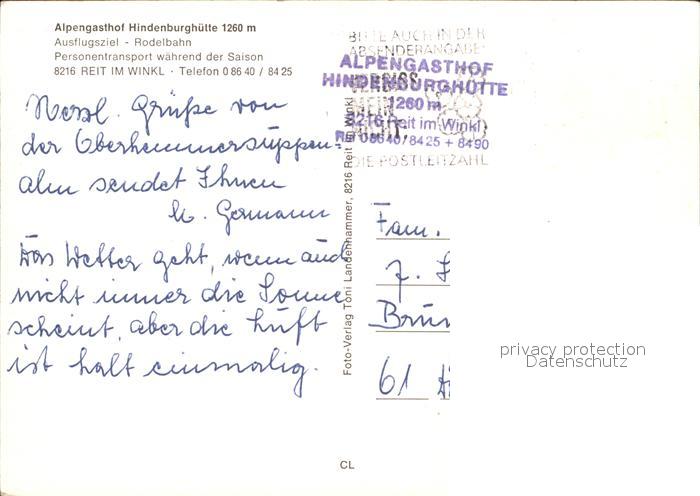 Alpengasthof Hindenburghütte 1260 m
Ausflugsziel - Rodelbahn
Personentransport während der Saison
8216 REIT IM WINKL · Telefon 0 86 40 / 84 25
BITTE AUCH IN DER
ABSENDERANGABE
VERGISS
MEIN
NICHT,
DIE POSTLEITZAHL
ALPENGASTHOF
HINDENBURGHÜTTE
1260 m
8216 Reit im Winkl
Tel. 08640/8425 + 8490
Herzl. Grüße von
der Oberhemmersuppen-
alm sendet Ihnen
Germann
Das Wetter geht, wenn auch
nicht immer die Sonne
scheint, aber die Luft
ist halt einmalig.
Foto-Verlag Toni Landenhammer, 8216 Reit im Winkl
Fam.
Brun
61
privacy protection
Datenschutz
CL